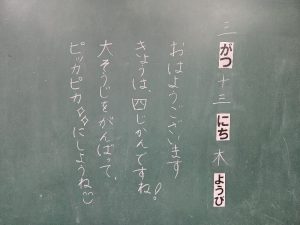 三がつ十三にち木ようび
おはようございます
きょうは、四じかんですね!
大そうじをがんばって、
ピッカピカにしようね